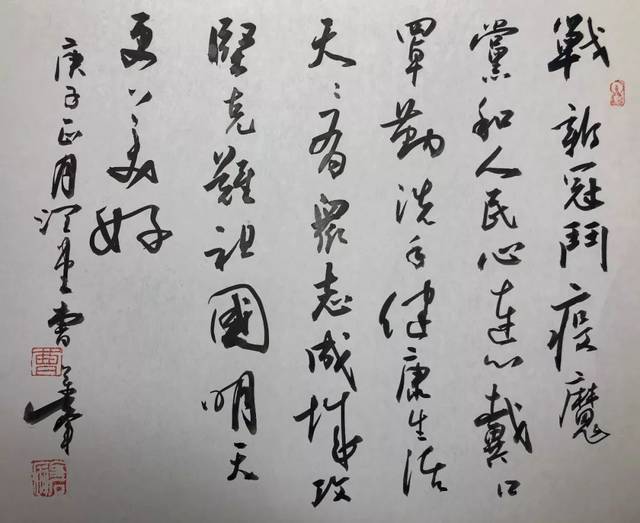 戰新冠鬥疫魔
黨和人民心連心戴口
罩勤洗手健康生活
天天有眾志成城攻
堅克難祖國明天
更加美好
庚子正月澄堂曹